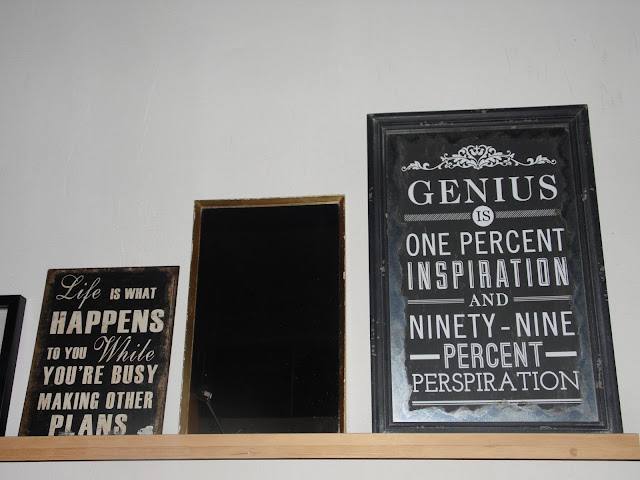 Life IS WHAT
HAPPENS
TO YOU While
YOU'RE BUSY
MAKING OTHER
PLANS
GENIUS
IS
ONE PERCENT
INSPIRATION
AND
NINETY-NINE
PERCENT
PERSPIRATION